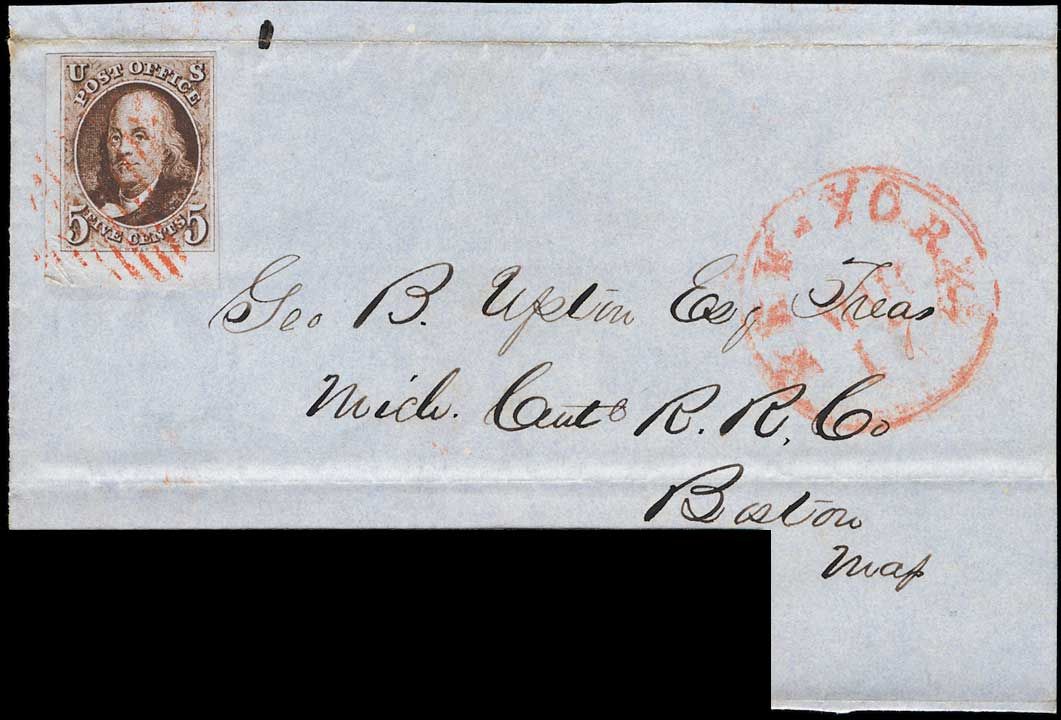 U S
POST OFFICE
5 FIVE CENTS 5
NEW-YORK
Geo B. Upton Esq Treas
Mich. Cent R. R. Co
Boston
Mas